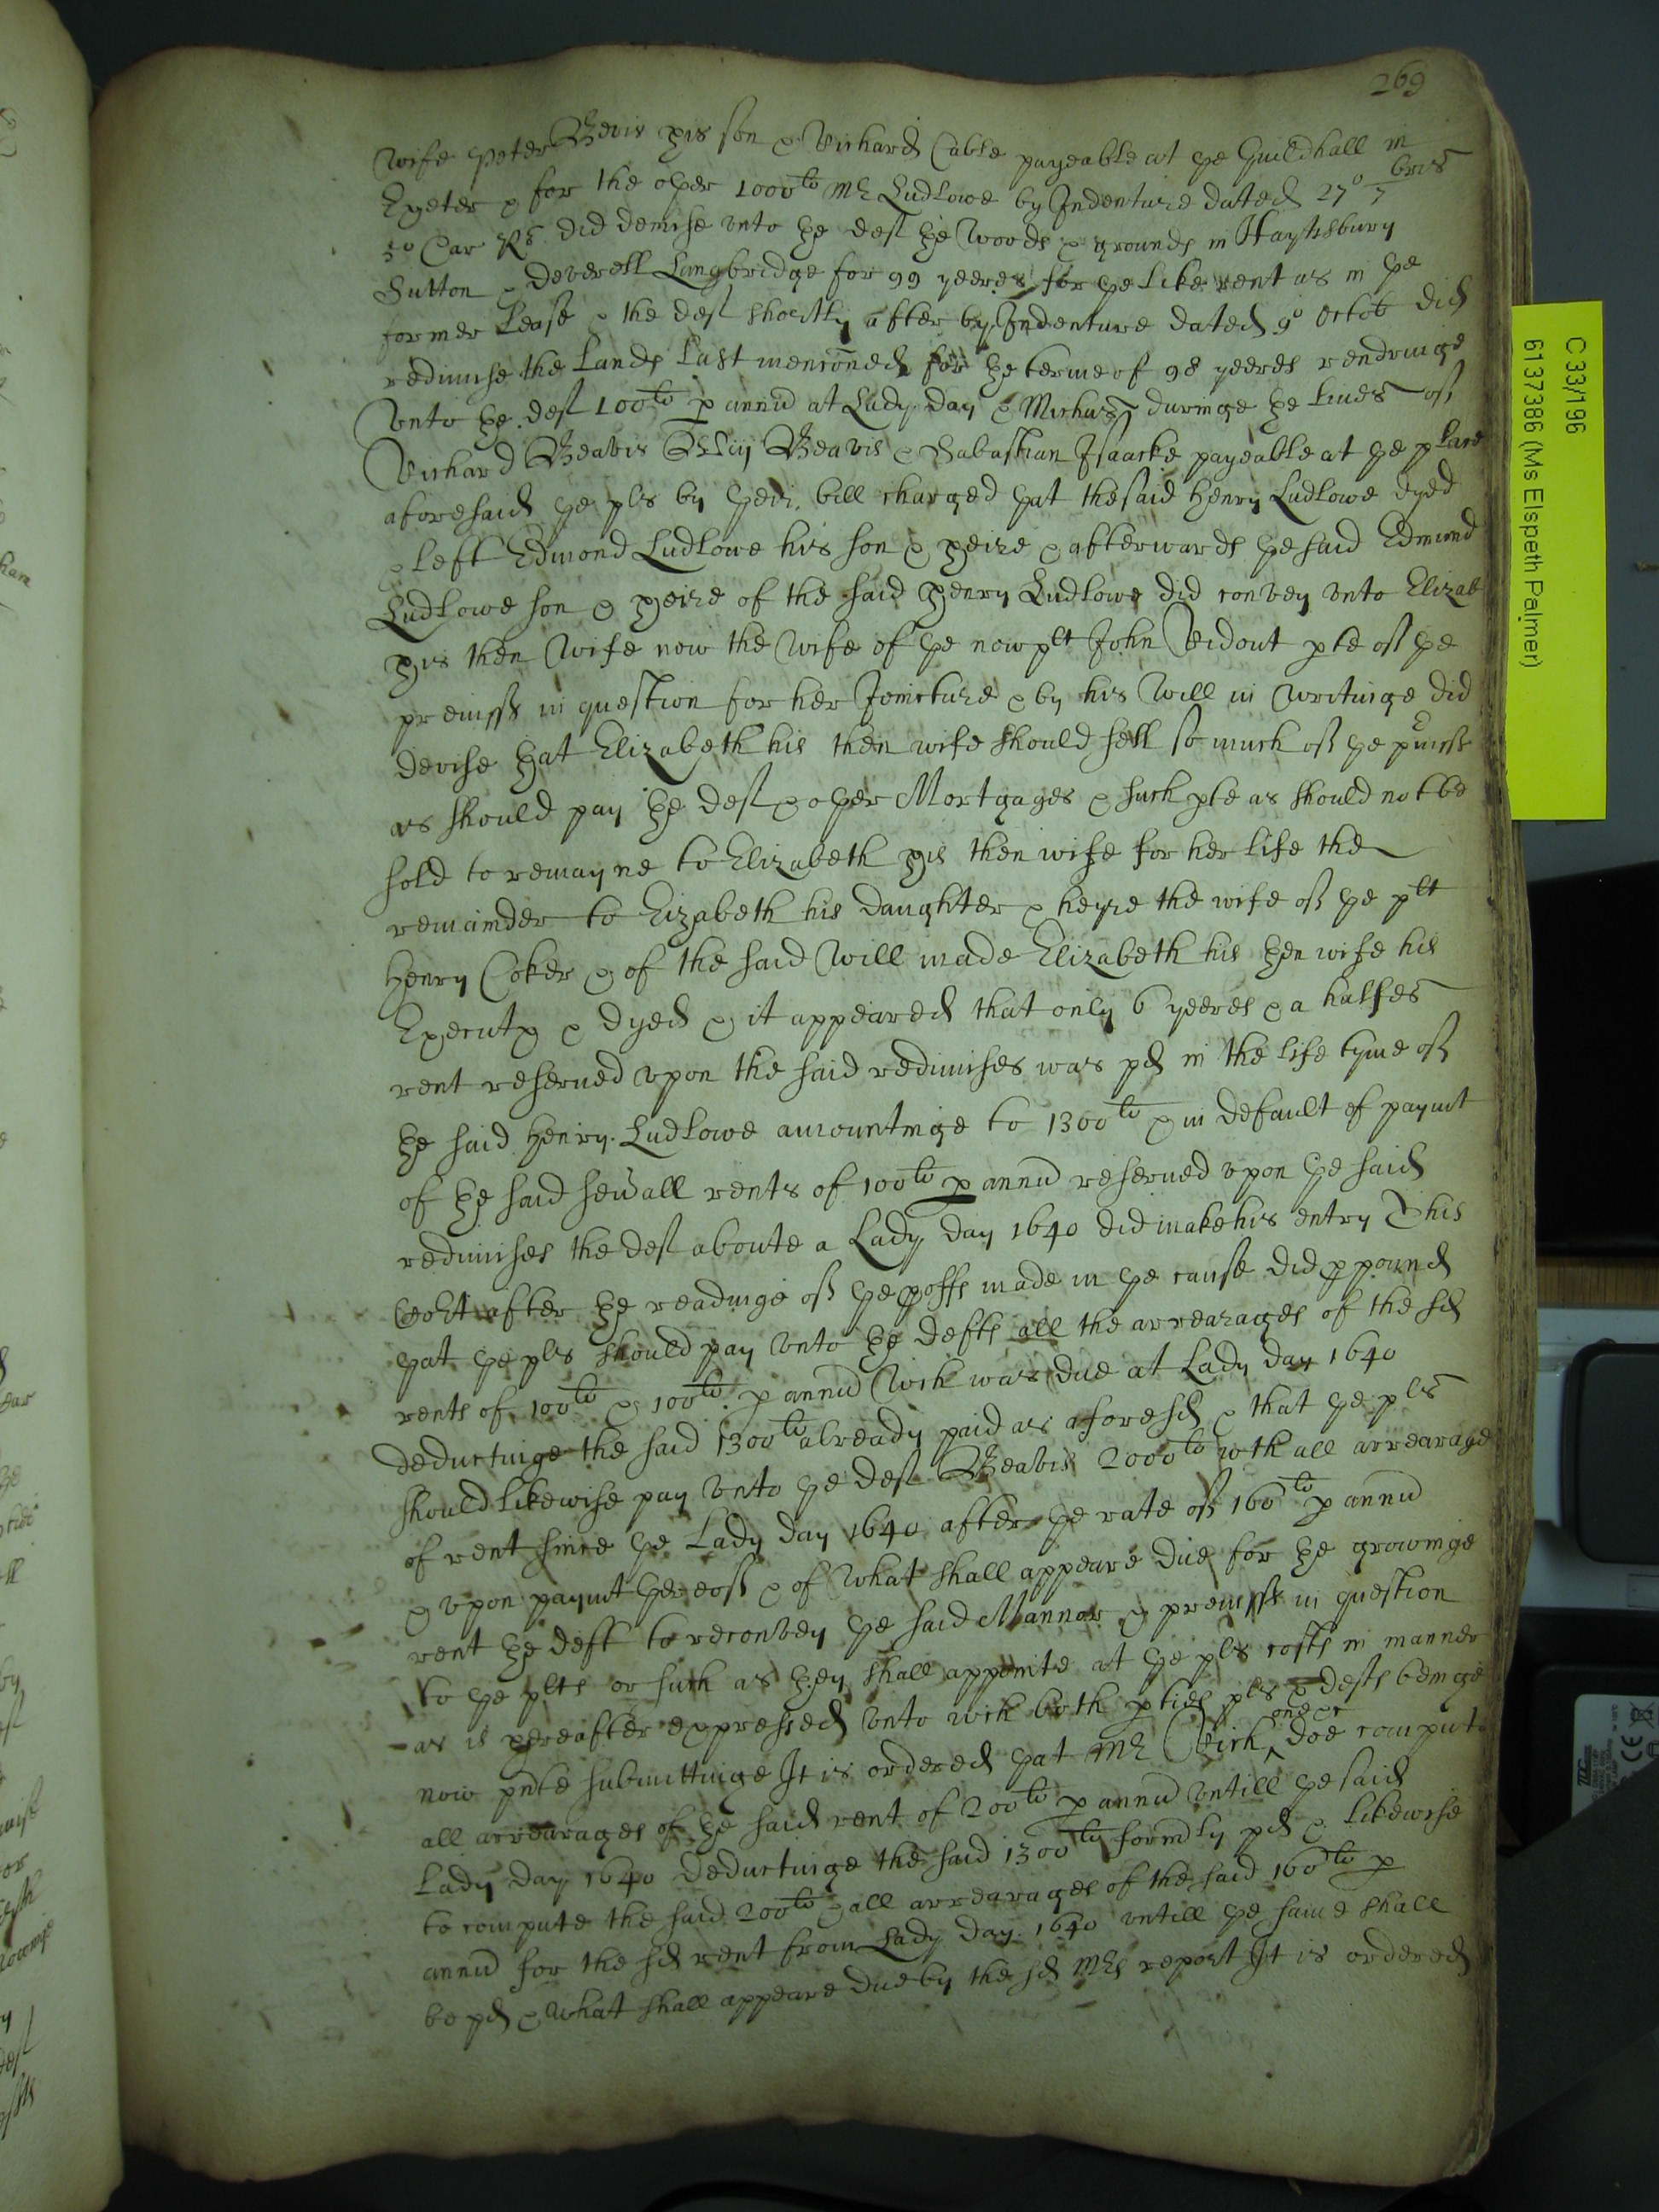 269
Wife Peter Bevis his son & Richard Cable payeable at ye Guildhall in
Exeter & for the oyer 1000li Mr Ludlowe by Indenture dated 27o 7bris
5o Car Rs did demise vnto ye deft ye Woods & grounds in Haytesbury
Sutton & Deverell Langbridge for 99 yeeres for ye like rent as in ye
former Lease & the deft shortly after by Indenture dated 9o Octob did
redimise the Lands Last menconed for ye terme of 98 yeeres rendringe
vnto ye deft 100li p annu at Lady day & Michas duringe ye Liues of
Richard Beavis Beavis & Sabastian Isaacke payeable at ye place
aforesaid ye pls by yeir bill charged yat the said Henry Ludlowe dyed
& left Edmond Ludlowe his son & heire & afterwards ye said Edmond
Ludlowe son & heire of the said Henry Ludlowe did convey vnto Elizab
his then Wife now the Wife of ye now plt John Ridout pte of ye
premisss in question for her Joincture & by his Will in writinge did
devise yat Elizabeth his then wife should sell so much of ye pmiss
as should pay ye deft & oyer Mortgages & such pte as should not be
sold to remayne to Elizabeth his then wife for her life the
remainder to Elizabeth his daughter & heyre the wife of ye plt
Henry Coker & of the said Will made Elizabeth his yen wife his
Executx & dyed & it appeared that only 6 yeeres & a halfes
rent reserued vpon the said redimises was pd in the life tyme of
ye said Henry Ludlowe amountinge to 1300li & in default of paymt
of ye said seuall rents of 100li p annu reserued vpon ye said
redimises the deft aboute a Lady day 1640 did make his entry This
Cort after ye readinge of ye pffs made in ye cause did ppound
yat ye pls should pay vnto ye defts all the arrearages of the sd
rents of 100li & 100li p annu Wch was due at Lady day 1640
deductinge the said 1300li already paid as aforesd & that ye pls
should likewise pay vnto ye deft Beavis 2000li wth all arrearage
of rent since ye Lady day 1640 after ye rate of 160li p annu
& vpon paymt yereof & of what shall appeare due for ye growinge
rent ye deft to reconvey ye said Mannor & premisss in question
to ye plts or such as yey shall appointe at ye pls costs in manner
as is hereafter expressed vnto wch both pties pls & defts beinge
now pnte submittinge It is ordered yat Mr Rich ^ one &c doe compute
all arrearages of ye said rent of 200li p annu vntill ye said
Lady day 1640 deductinge the said 1300li formly pd & likewise
to compute the said 200li & all arrearages of the said 160li p
annu for the sd rent from Lady day 1640 vntill ye same shall
be pd & what shall appeare due by the sd Mrs report It is ordered
C 33/196
6137386 (Ms Elspeth Palmer)